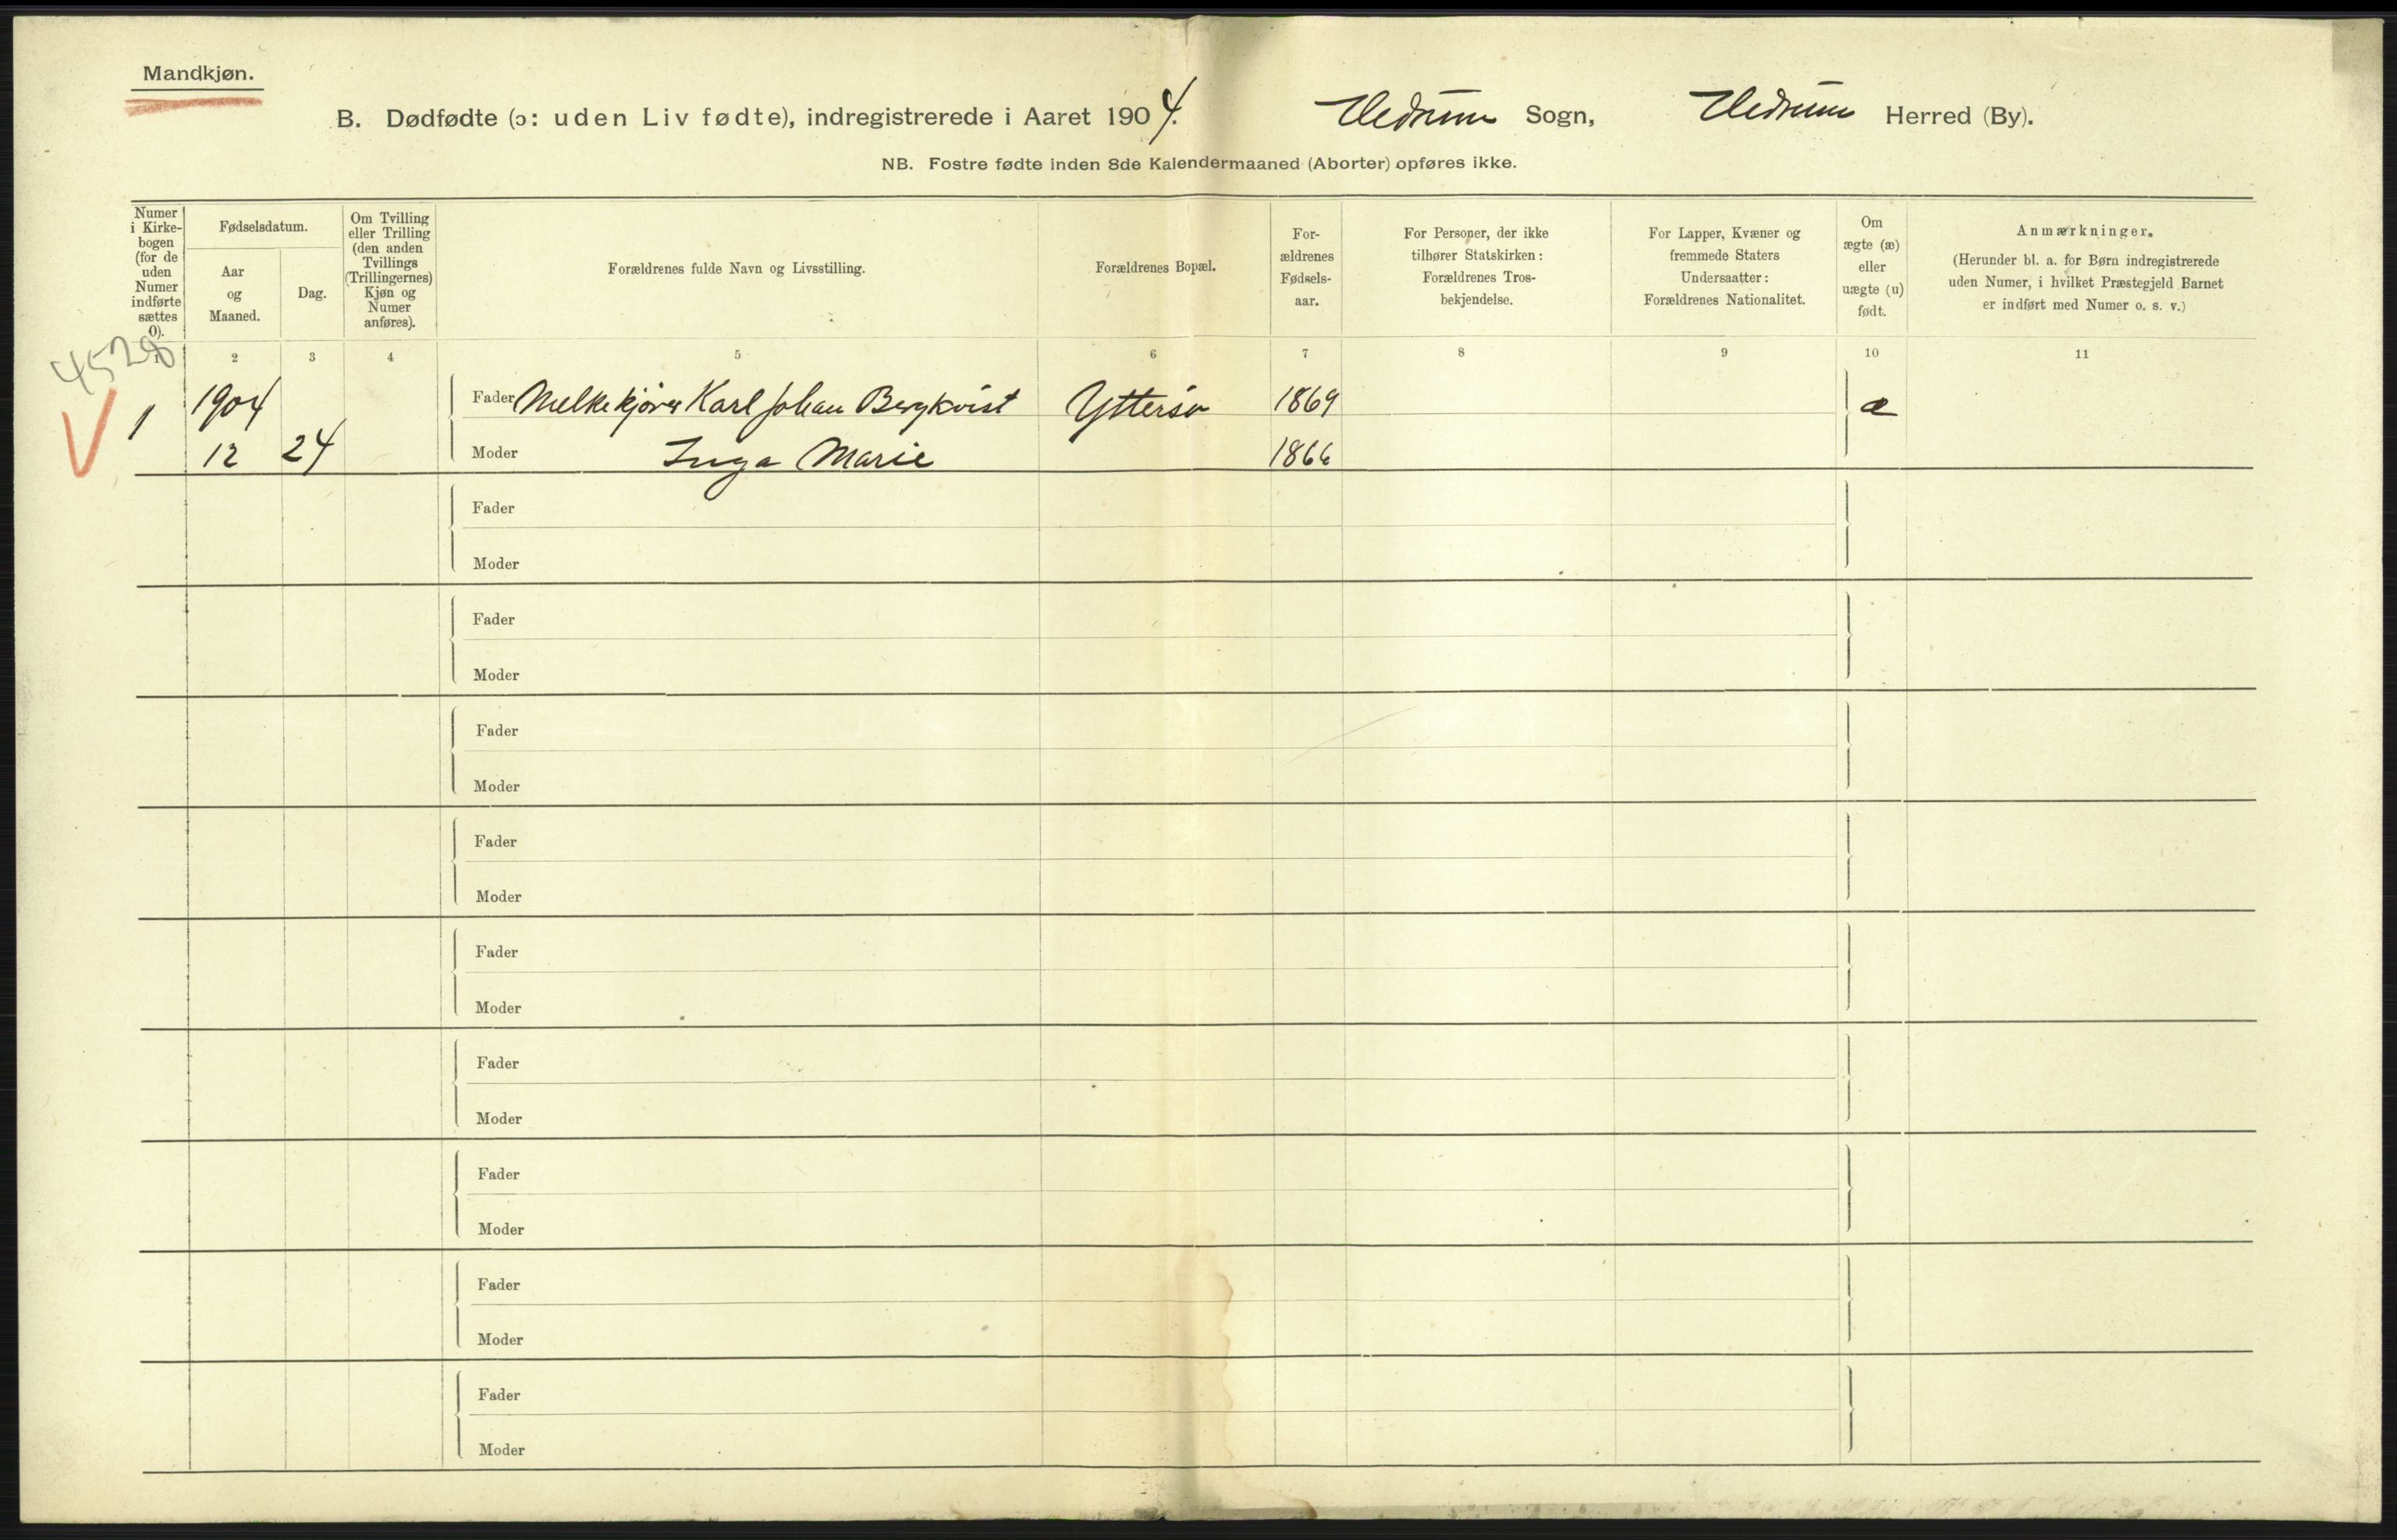 Mandkjøn.
B. Dødfødte (ɔ: uden Liv fødte), indregistrerede i Aaret 1904. Hedrum Sogn, Hedrum Herred (By).
NB. Fostre fødte inden 8de Kalendermaaned (Aborter) opføres ikke.
Numer
i Kirke-
bogen
(for de
uden
Numer
indførte
sættes
0).
Fødselsdatum.
Aar
og
Maaned.
Dag.
Om Tvilling
eller Trilling
(den anden
Tvillings
(Trillingernes)
Kjøn og
Numer
anføres).
Forældrenes fulde Navn og Livsstilling.
Forældrenes Bopæl.
For-
ældrenes
Fødsels-
aar.
For Personer, der ikke
tilhører Statskirken:
Forældrenes Tros-
bekjendelse.
For Lapper, Kvæner og
fremmede Staters
Undersaatter:
Forældrenes Nationalitet.
Om
ægte (æ)
eller
uægte (u)
født.
Anmærkninger.
(Herunder bl. a. for Børn indregistrerede
uden Numer, i hvilket Præstegjeld Barnet
er indført med Numer o. s. v.)
4528
1 2 3 4 5 6 7 8 9 10 11
1 1904 Fader Melkekjører Karl Johan Bergkvist Yttersø 1869 æ
12 24 Moder Inga Marie 1866
Fader
Moder
Fader
Moder
Fader
Moder
Fader
Moder
Fader
Moder
Fader
Moder
Fader
Moder
Fader
Moder
Fader
Moder